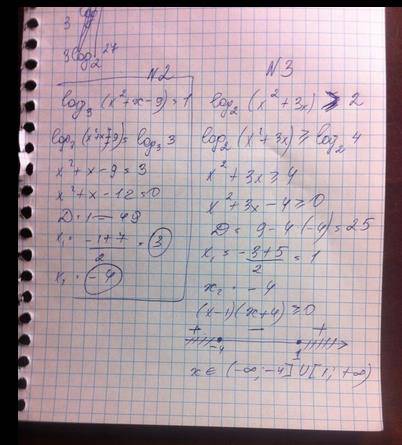 3 log
3 log₂ 27
N2
log₃ (x² + x - 9) = 1
log₃ (x² + x - 9) = log₃ 3
x² + x - 9 = 3
x² + x - 12 = 0
D = 1 — 49
x₁ = (-1 + 7)/2 = 3
x₂ = -4
N3
log₂ (x² + 3x) ≥ 2
log₂ (x² + 3x) ≥ log₂ 4
x² + 3x ≥ 4
x² + 3x - 4 ≥ 0
D = 9 - 4·(-4) = 25
x₁ = (-3 + 5)/2 = 1
x₂ = -4
(x - 1)(x + 4) ≥ 0
+ — +
-4 1
x ∈ (-∞; -4] ∪ [1; +∞)